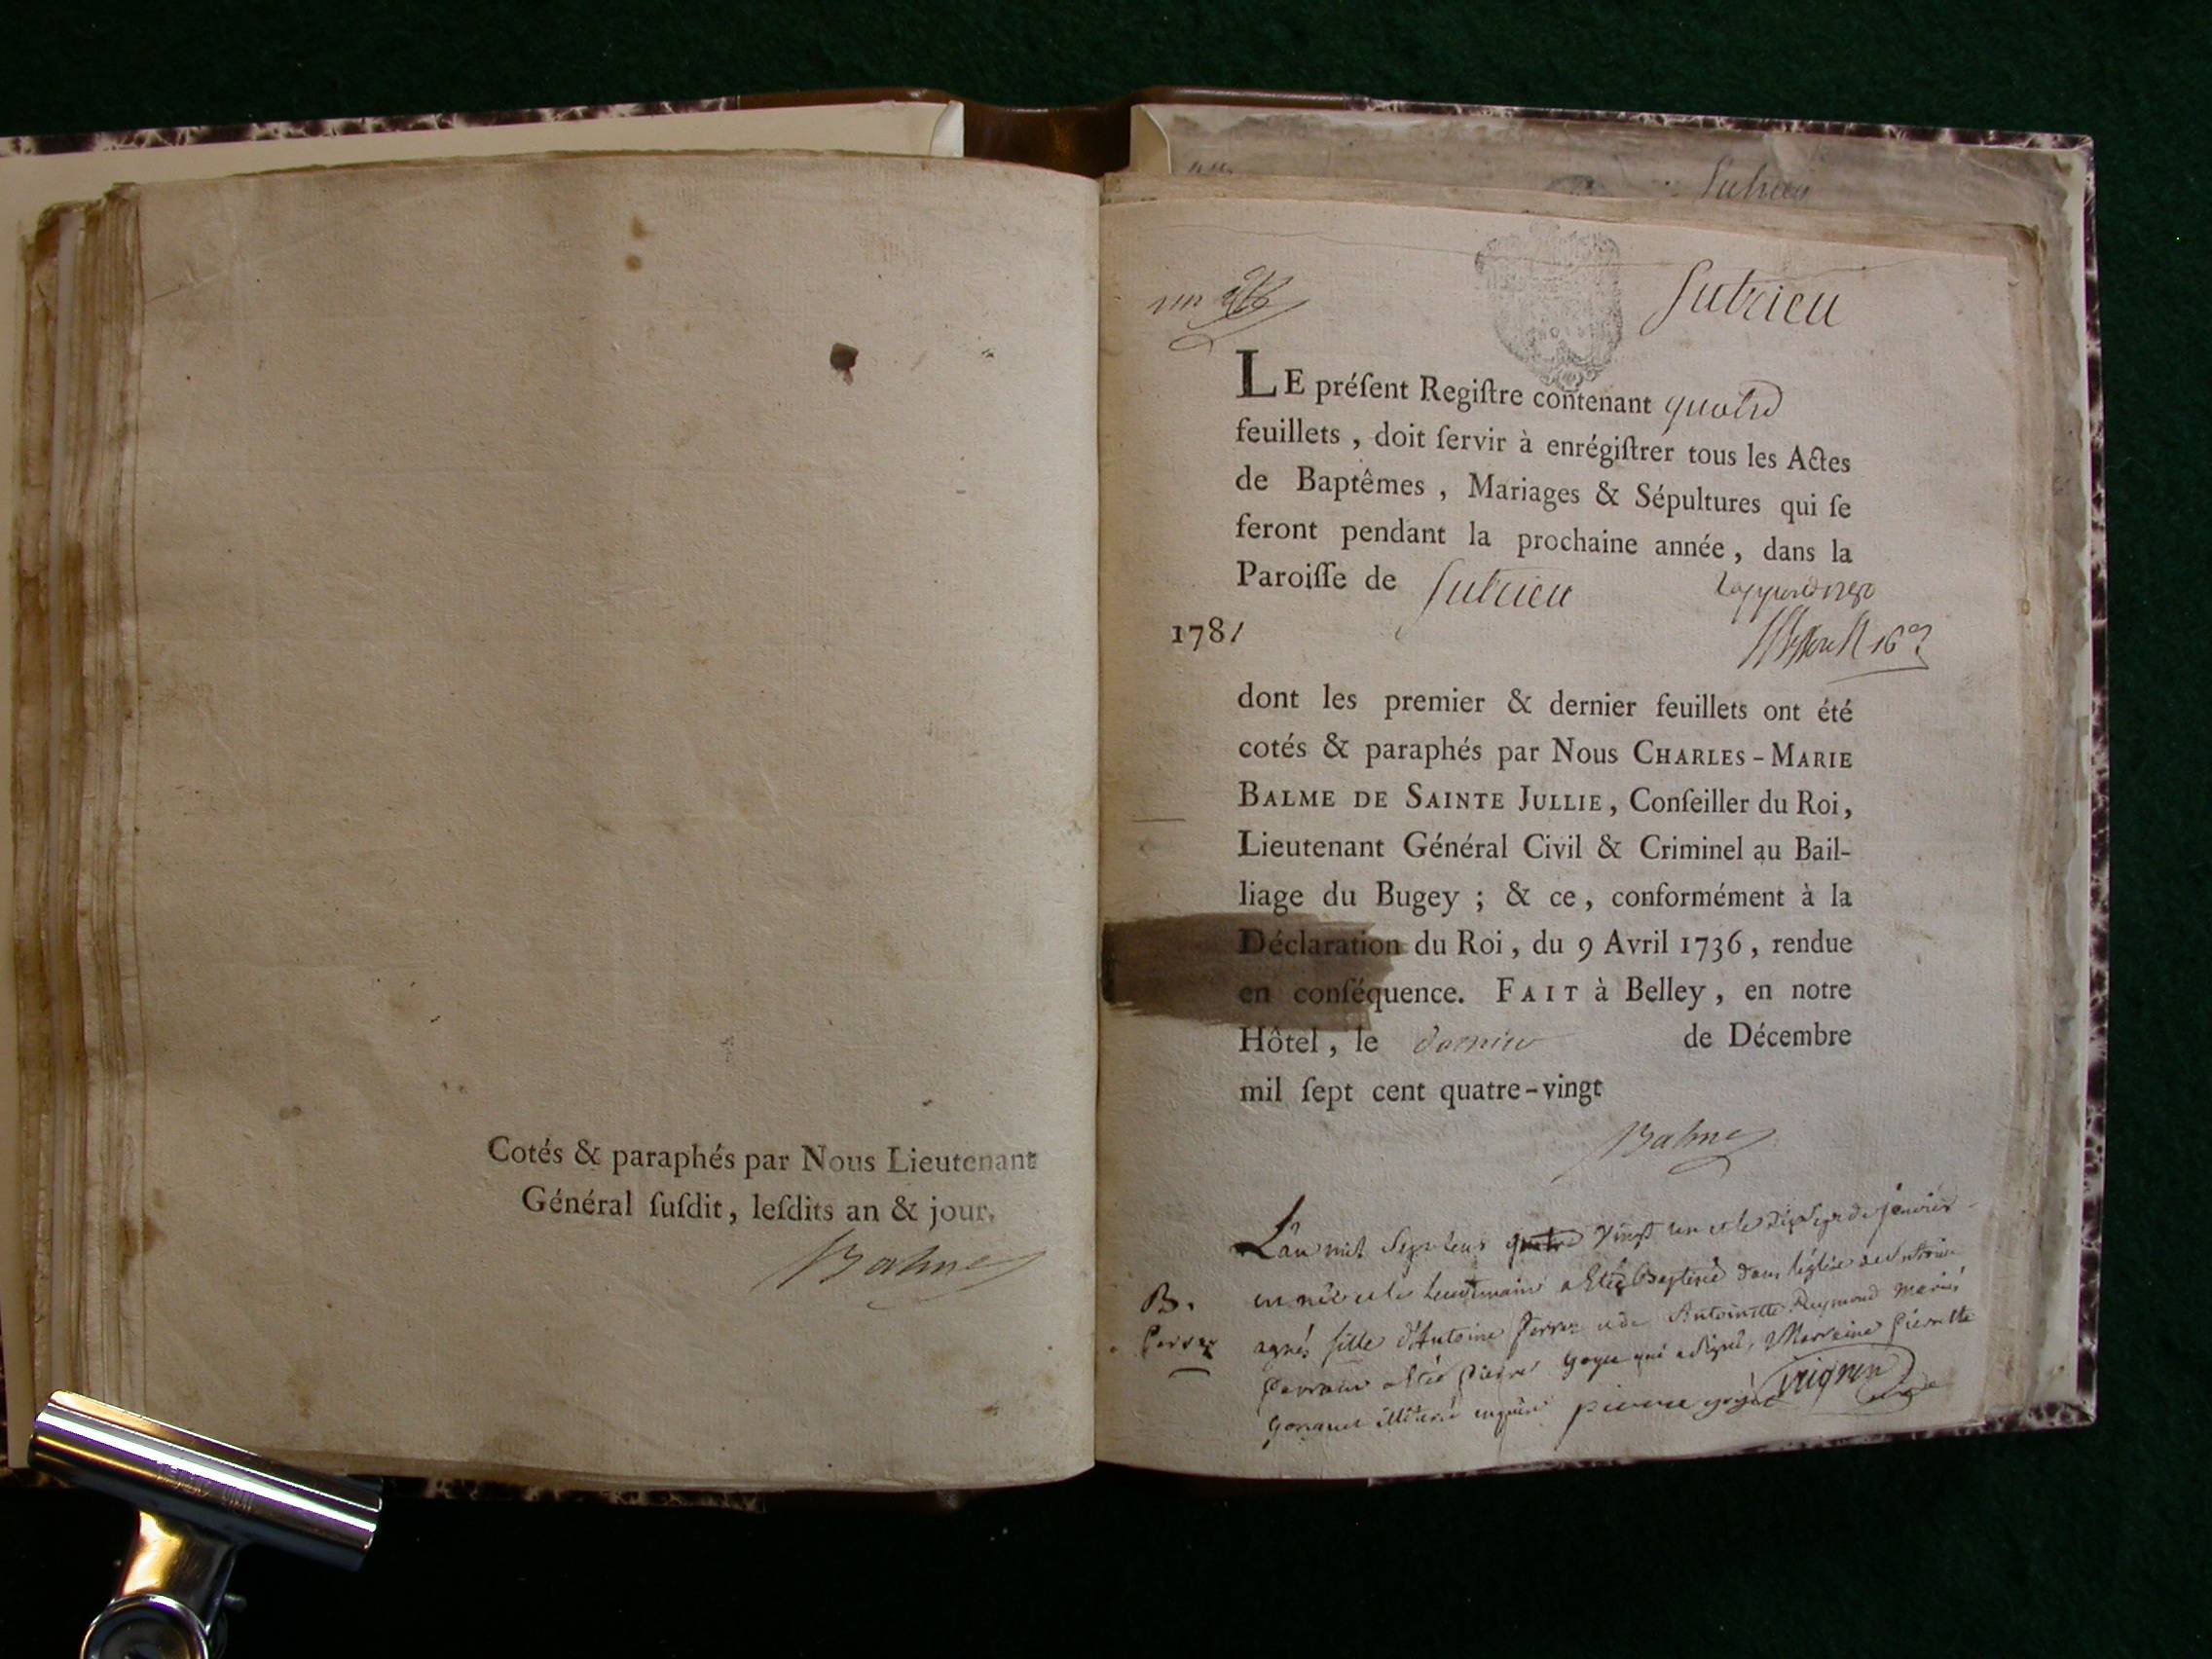 Cotés & paraphés par Nous Lieutenant
Général ſuſdit, leſdits an & jour.
Balme
Sutrieu
LE préſent Regiſtre contenant quatre
feuillets, doit ſervir à enrégiſtrer tous les Actes
de Baptêmes, Mariages & Sépultures qui ſe
feront pendant la prochaine année, dans la
Paroiſſe de Sutrieu
1781
dont les premier & dernier feuillets ont été
cotés & paraphés par Nous CHARLES-MARIE
BALME DE SAINTE JULLIE, Conſeiller du Roi,
Lieutenant Général Civil & Criminel au Bail-
liage du Bugey ; & ce, conformément à la
Déclaration du Roi, du 9 Avril 1736, rendue
en conſéquence. FAIT à Belley, en notre
Hôtel, le dernier de Décembre
mil ſept cent quatre-vingt
Balme
L'an mil sept cens quatre vingt un et le de janvier
B. est née et le lendemain a été Baptisée dans l'église de Sutrieu
Perrez agnés fille d'Antoine Perrez et de Antoinette Reymond mariés
parrain a été pierre goyet qui a signé, Marraine pierrette
illiterée enquise pierre goyet